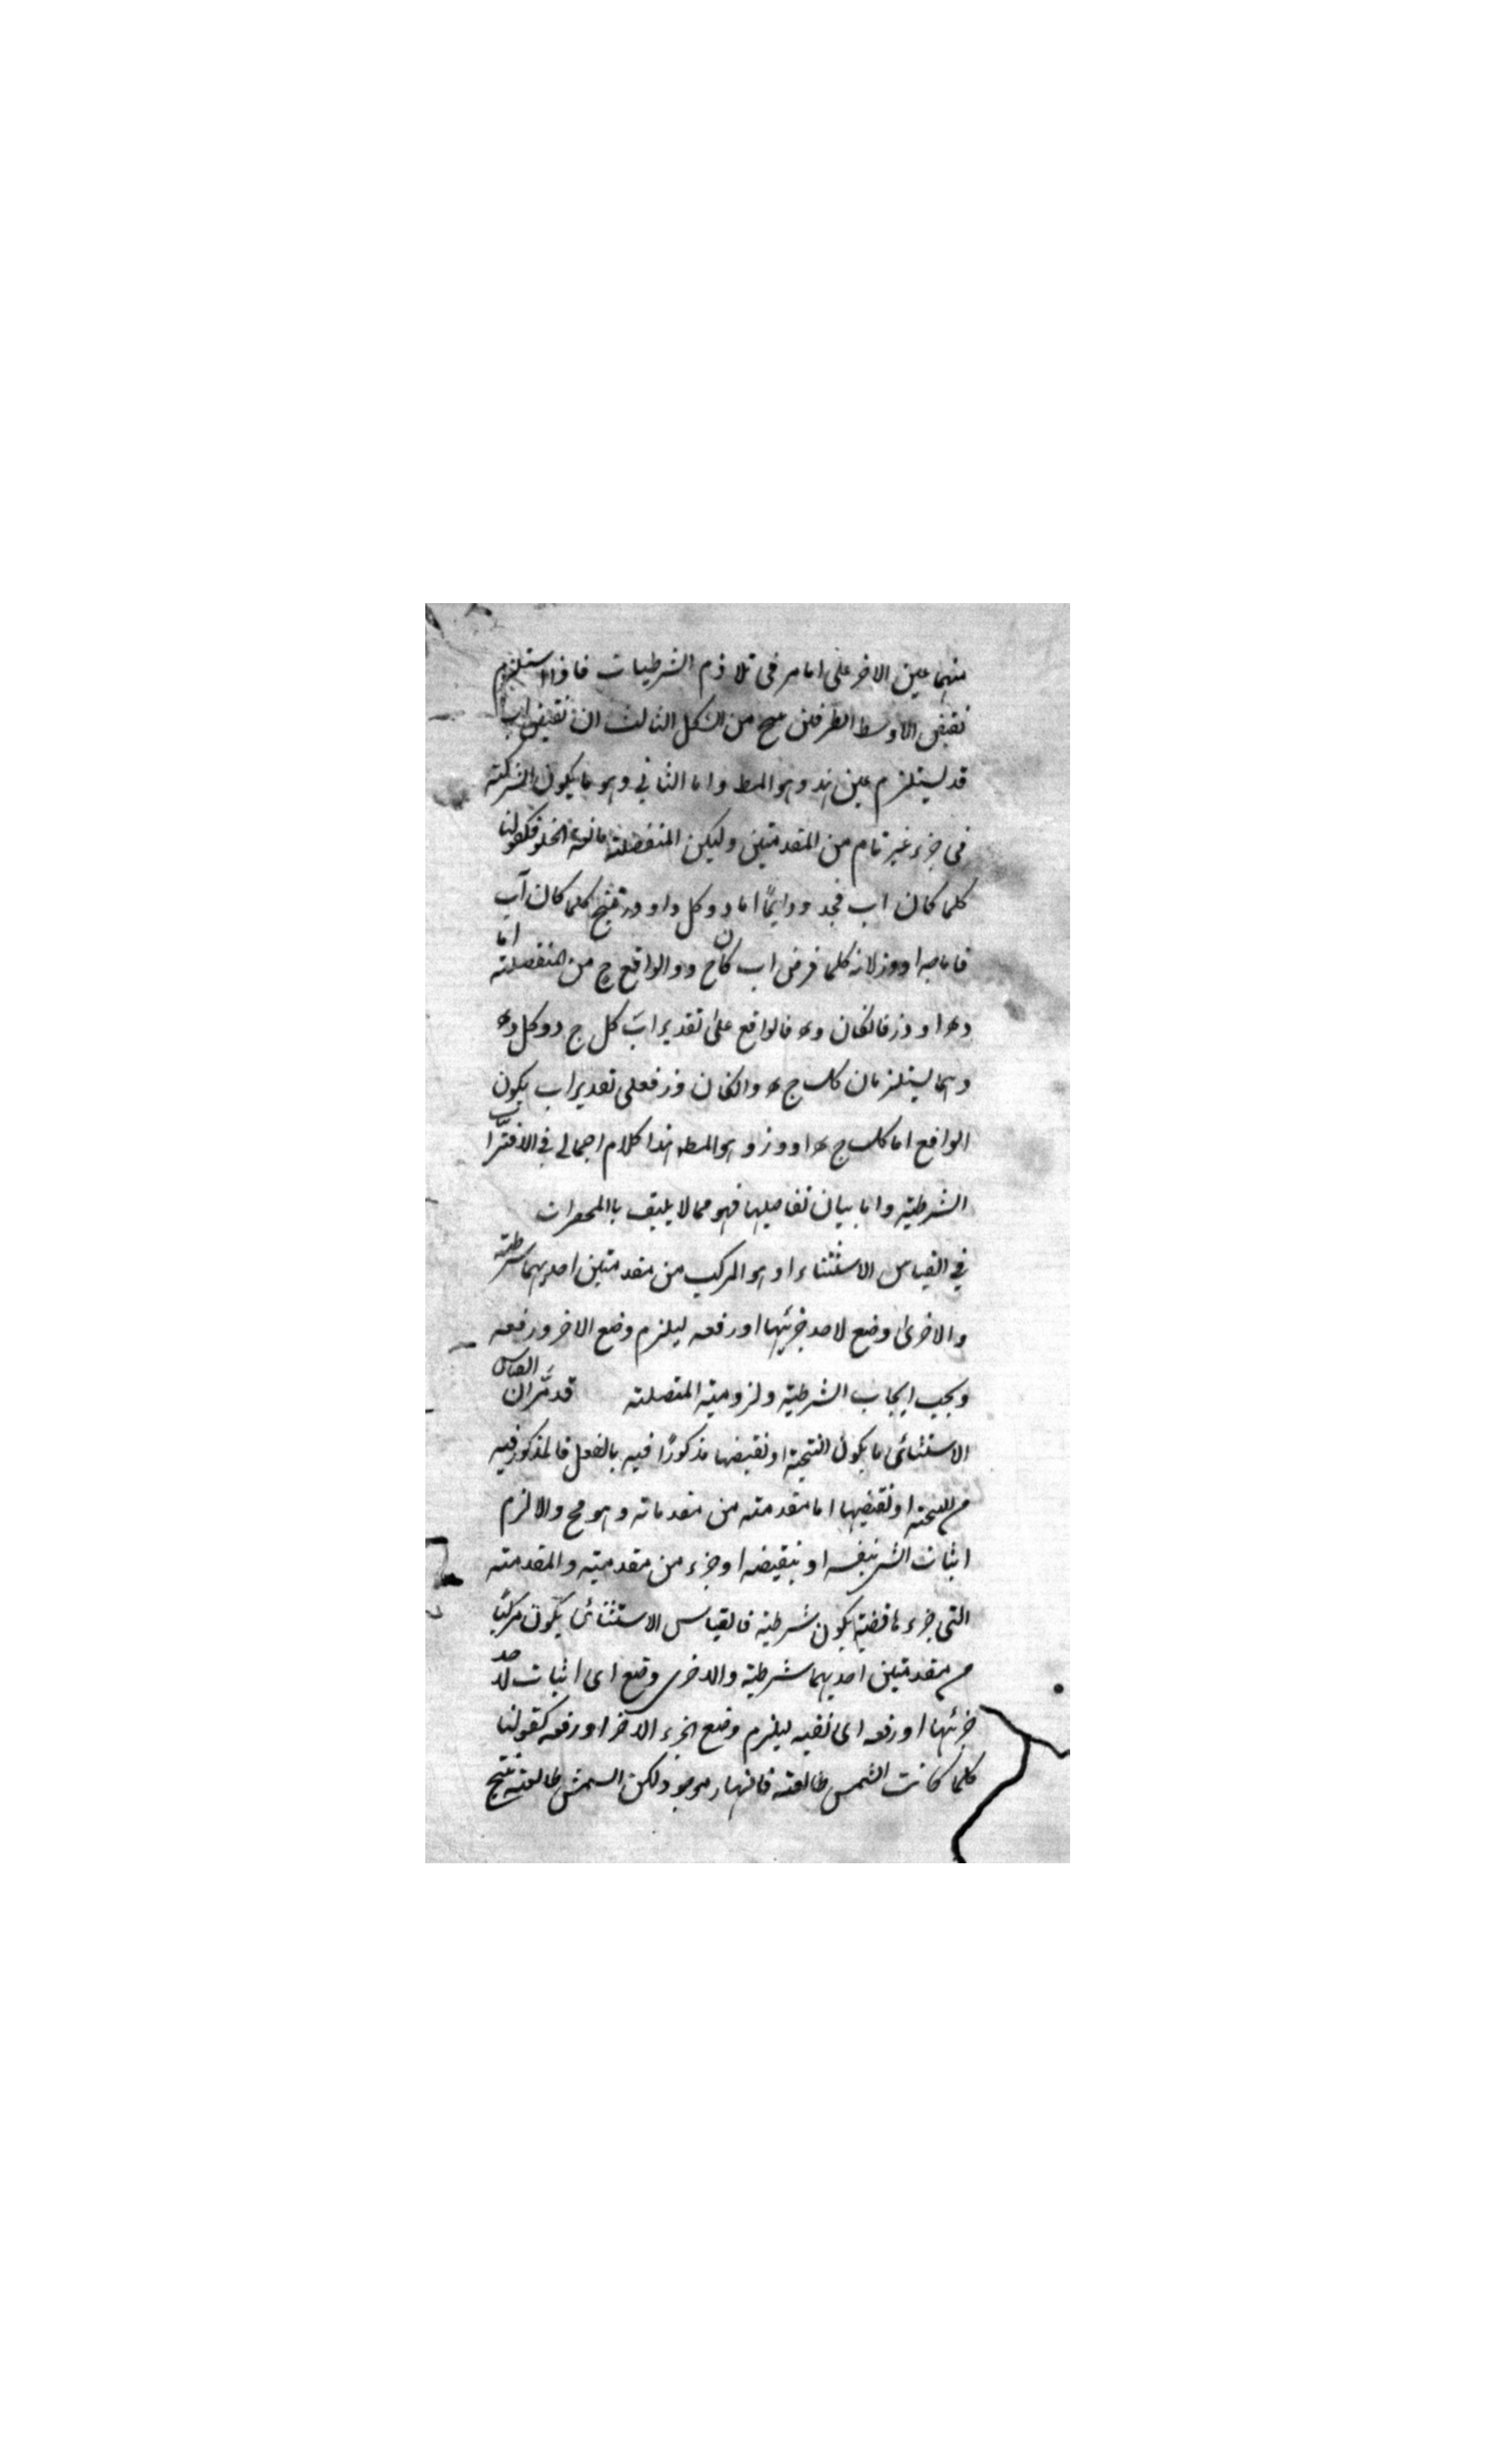 منهما عين الاخر على ما مر فى تلازم الشرطيات فاذا استلزم
نقيض الاوسط الطرفين ينتج من الشكل الثالث ان نقيض اب
قد يستلزم عين هد وهو المط واما الثانى وهو ما يكون الشركته
فى جزء غير تام من المقدمتين وليكن المنفصلة مانعة الخلو فكقولنا
كلما كان اب فجد ودايمًا اما وكل دا او در ينتج كلما كان آب
فاما جه او وز لانه كلما فرض اب كان ح د والواقع ح من المنفصلته اما
ده او وز فالكان ده فالواقع على تقدير اب كل ج د وكل ده
وهما يستلزمان كل ج ه والكان وز فعلى تقدير اب يكون
الواقع اما كل ج ه او وز وهو المط هذا كلام اجمالى فى الاقترانيات
الشرطية واما بيان تفاصيلها فهو مما لا يليق باالمختصرات
فى القياس الاستثناء او هو المركب من مقدمتين احديهما شرطية
والاخرى وضع لاحد جزئيها او رفعه ليلزم وضع الاخر ورفعه
ويجب ايجاب الشرطية ولزومية المتصلته قد مّر ان القياس
الاستثنائى ما يكون النتيجة او نقيضها مذكورًا فيه بالفعل فالمذكور فيه
من النتيجة او نقيضها اما مقدمته من مقدماته وهو مح والا لزم
اثبات الشى بنفسه او بنقيضه او جزء من مقدميته والمقدمته
التى جزءها قضية يكون شرطية فالقياس الاستثنائى يكون مركبًا
من مقدمتين احديهما شرطية والاخرى وضع اى اثبات لاحد
جزئها او رفعه اى نفيه ليلزم وضع الجزء الآخر او رفعه كقولنا
كلما كانت الشمس طالعته فالنهار موجود لكن الشمس طالعته ينتج